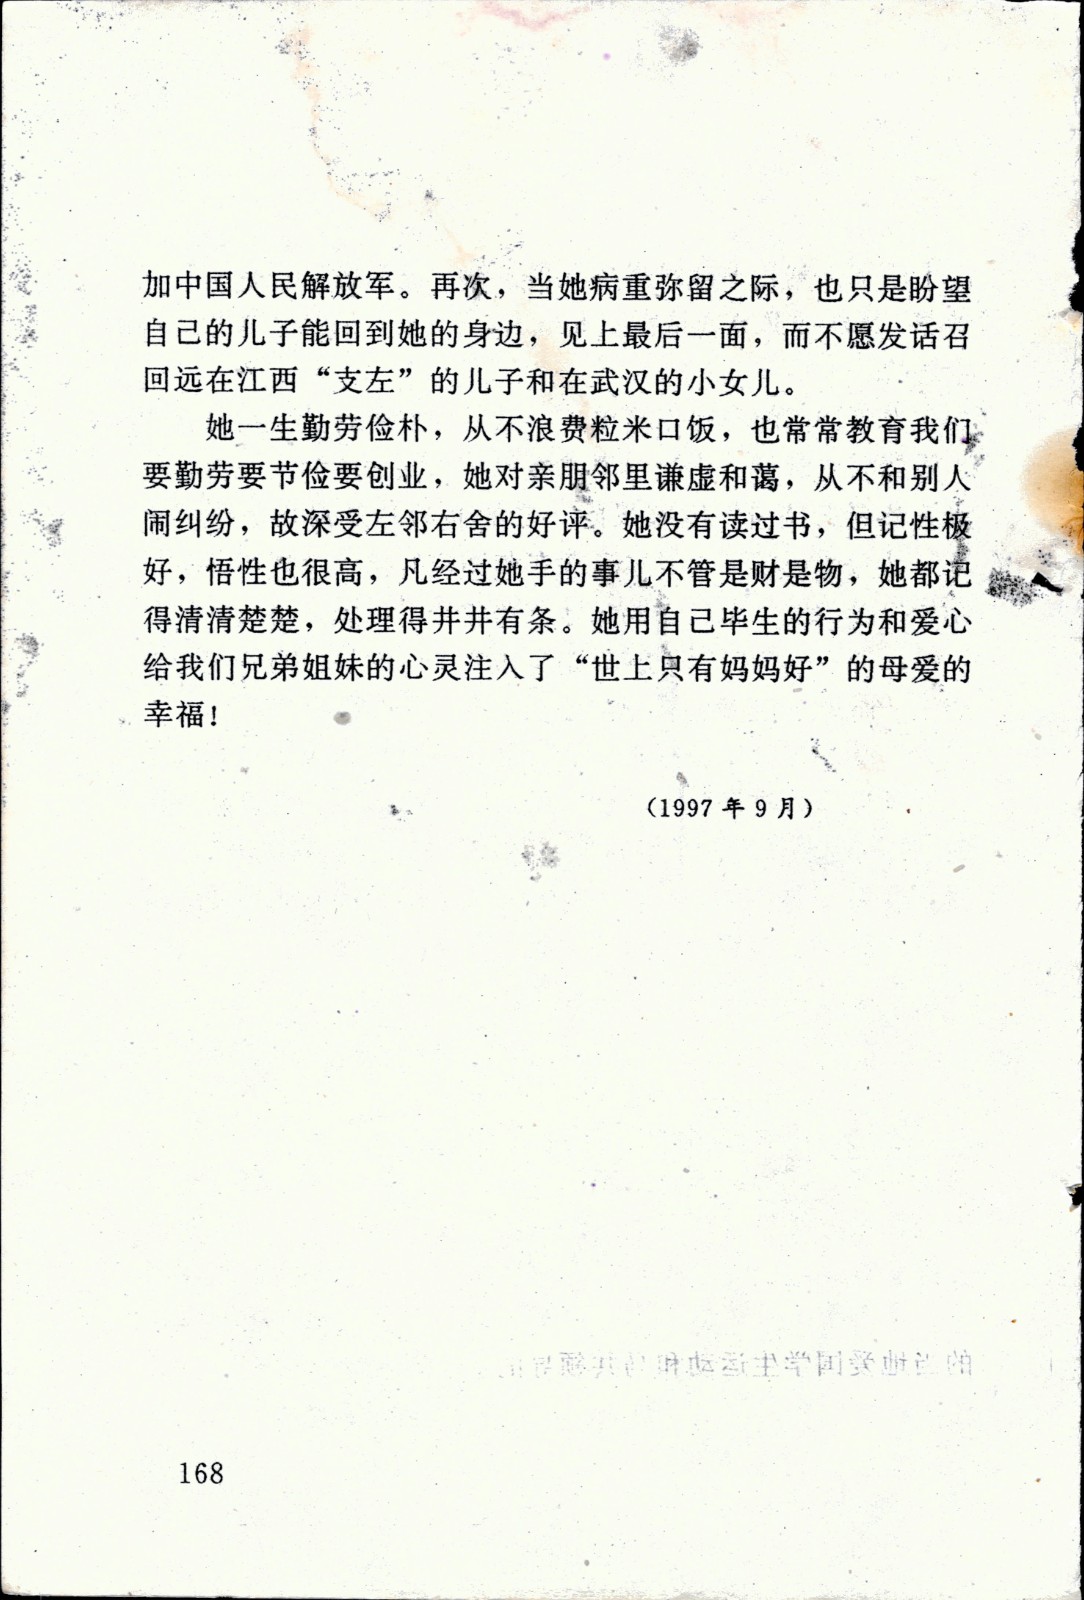 加中国人民解放军。再次，当她病重弥留之际，也只是盼望
自己的儿子能回到她的身边，见上最后一面，而不愿发话召
回远在江西“支左”的儿子和在武汉的小女儿。
她一生勤劳俭朴，从不浪费粒米口饭，也常常教育我们
要勤劳要节俭要创业，她对亲朋邻里谦虚和蔼，从不和别人
闹纠纷，故深受左邻右舍的好评。她没有读过书，但记性极
好，悟性也很高，凡经过她手的事儿不管是财是物，她都记
得清清楚楚，处理得井井有条。她用自己毕生的行为和爱心
给我们兄弟姐妹的心灵注入了“世上只有妈妈好”的母爱的
幸福！
（1997年9月）
168